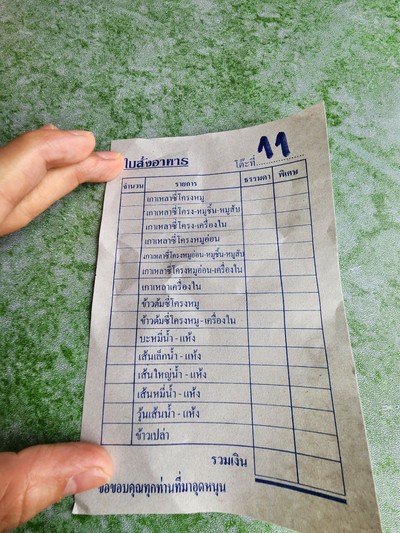 ใบสั่งอาหาร
โต๊ะที่.............. 11
จำนวน รายการ ธรรมดา พิเศษ
เกาเหลาซี่โครงหมู
เกาเหลาซี่โครง-หมูชิ้น-หมูสับ
เกาเหลาซี่โครง-เครื่องใน
เกาเหลาซี่โครงหมูอ่อน
เกาเหลาซี่โครงหมูอ่อน-หมูชิ้น-หมูสับ
เกาเหลาซี่โครงหมูอ่อน-เครื่องใน
เกาเหลาเครื่องใน
ข้าวต้มซี่โครงหมู
ข้าวต้มซี่โครงหมู-เครื่องใน
บะหมี่น้ำ - แห้ง
เส้นเล็กน้ำ - แห้ง
เส้นใหญ่น้ำ - แห้ง
เส้นหมี่น้ำ - แห้ง
วุ้นเส้นน้ำ - แห้ง
ข้าวเปล่า
รวมเงิน
ขอขอบคุณทุกท่านที่มาอุดหนุน